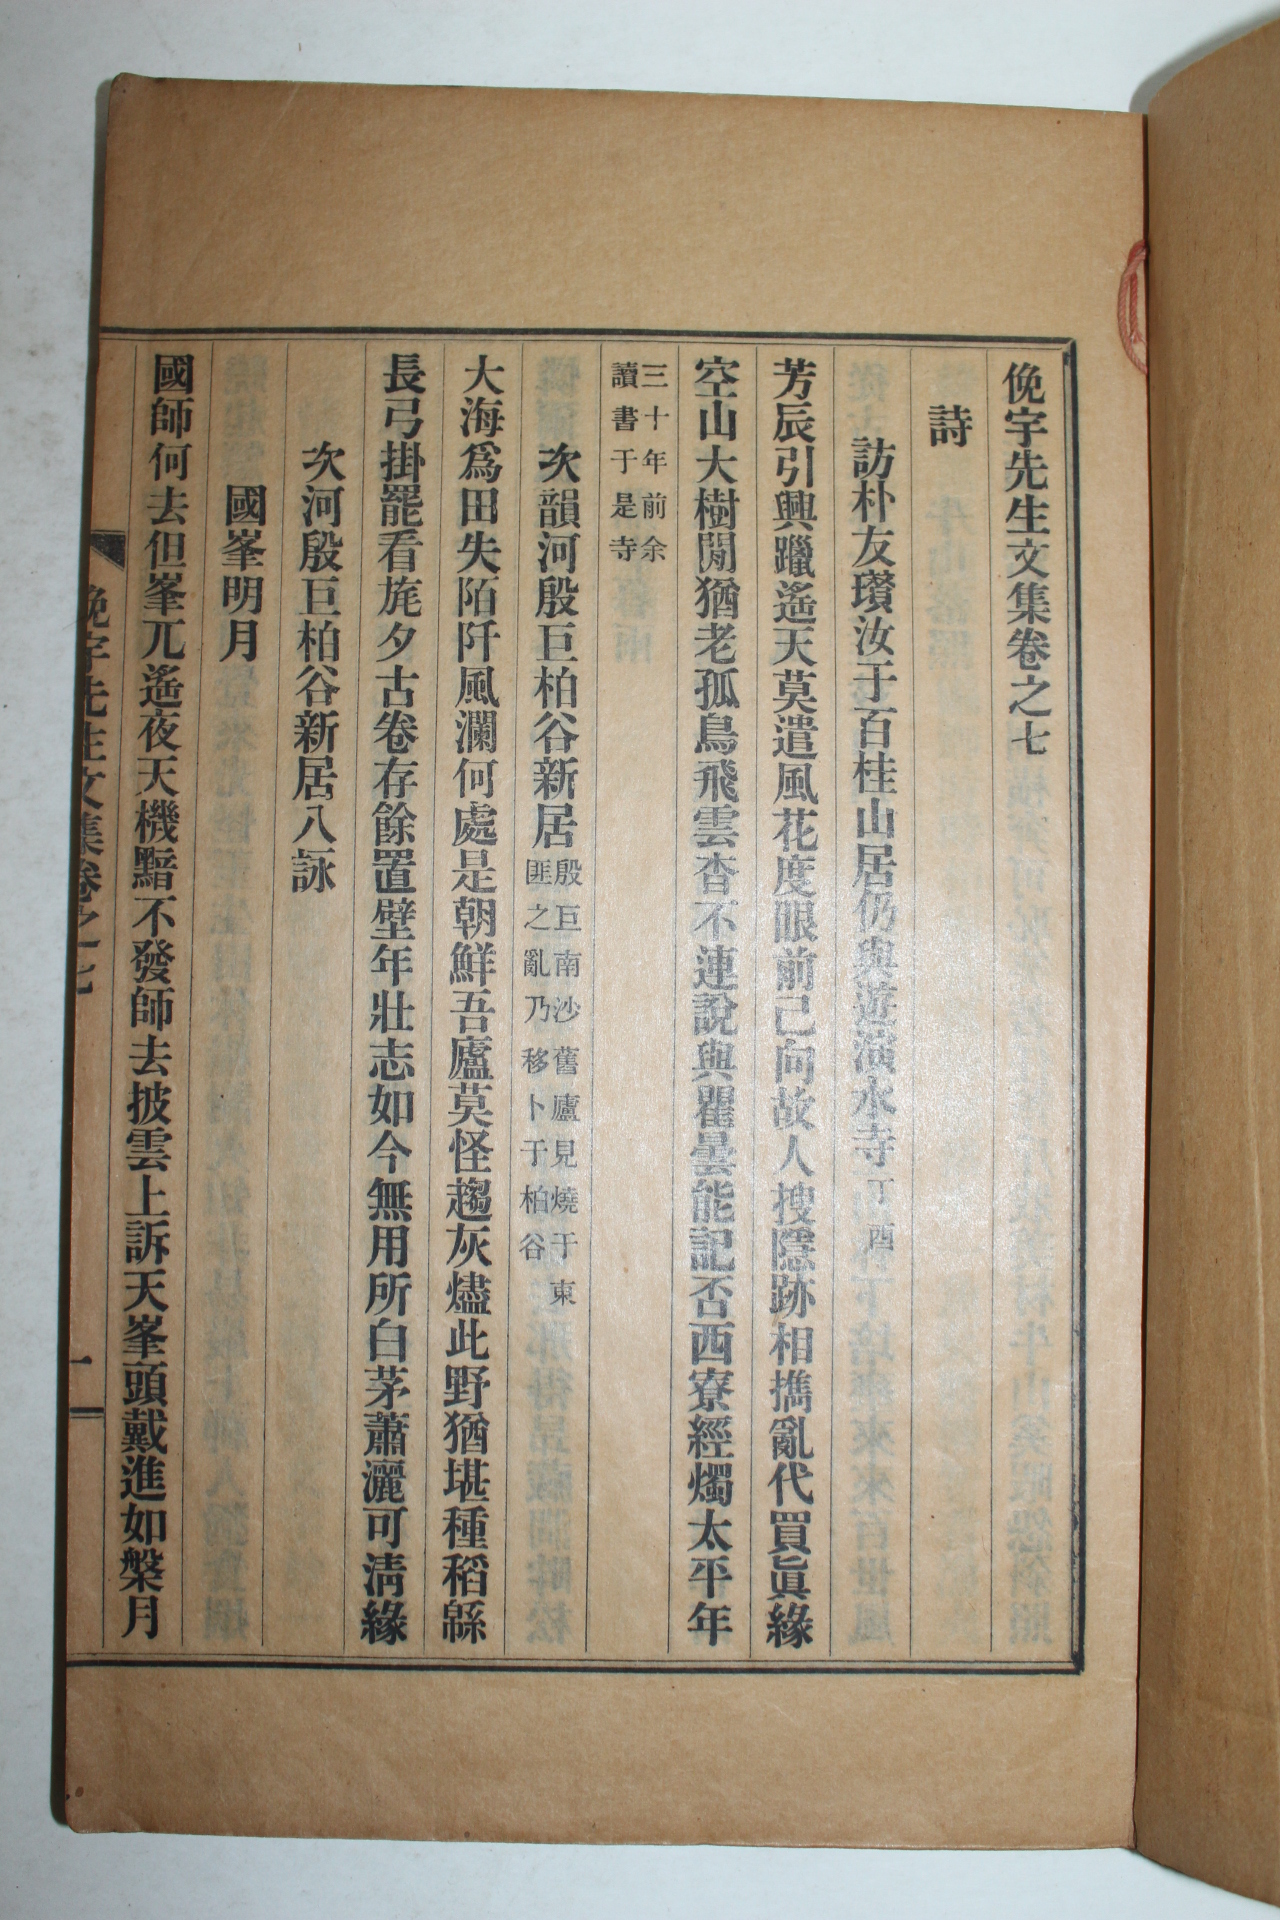 俛宇先生文集卷之七
詩
訪朴友瓚汝于百桂山居仍與遊演水寺丁酉
芳辰引興躐遙天莫遣風花度眼前己向故人搜隱跡相擕亂代買眞緣
空山大樹閒猶老孤鳥飛雲杳不連說與瞿曇能記否西寮經燭太平年
三十年前余
讀書于是寺
次韻河殷巨柏谷新居殷巨南沙舊廬見燒于東
匪之亂乃移卜于柏谷
大海爲田失陌阡風瀾何處是朝鮮吾廬莫怪趨灰燼此野猶堪種稻緜
長弓掛罷看旄夕古卷存餘置壁年壯志如今無用所白茅蕭灑可淸緣
次河殷巨柏谷新居八詠
國峯明月
國師何去但峯兀遙夜天機黯不發師去披雲上訴天峯頭戴進如槃月
俛宇先生文集卷之七
一